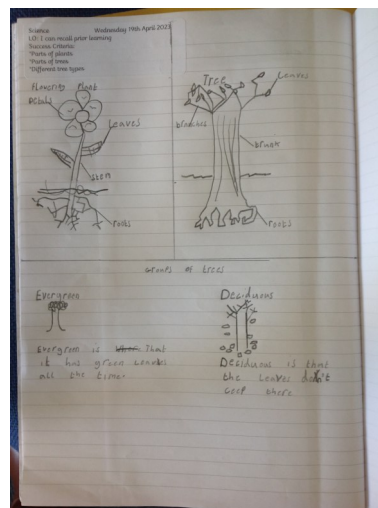 Science Wednesday 19th April 2023
LO: I can recall prior learning
Success Criteria:
*Parts of plants
*Parts of trees
*Different tree types
flowering Plant
Petals
Leaves
Stem
roots
Tree
Leaves
branches
trunk
roots
Groups of trees
Evergreen
Evergreen is that
it has green Leaves
all the time.
Deciduous
Deciduous is that
the Leaves don't
ceep there